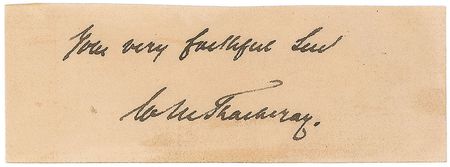 Your very faithful Servt
W M Thackeray.